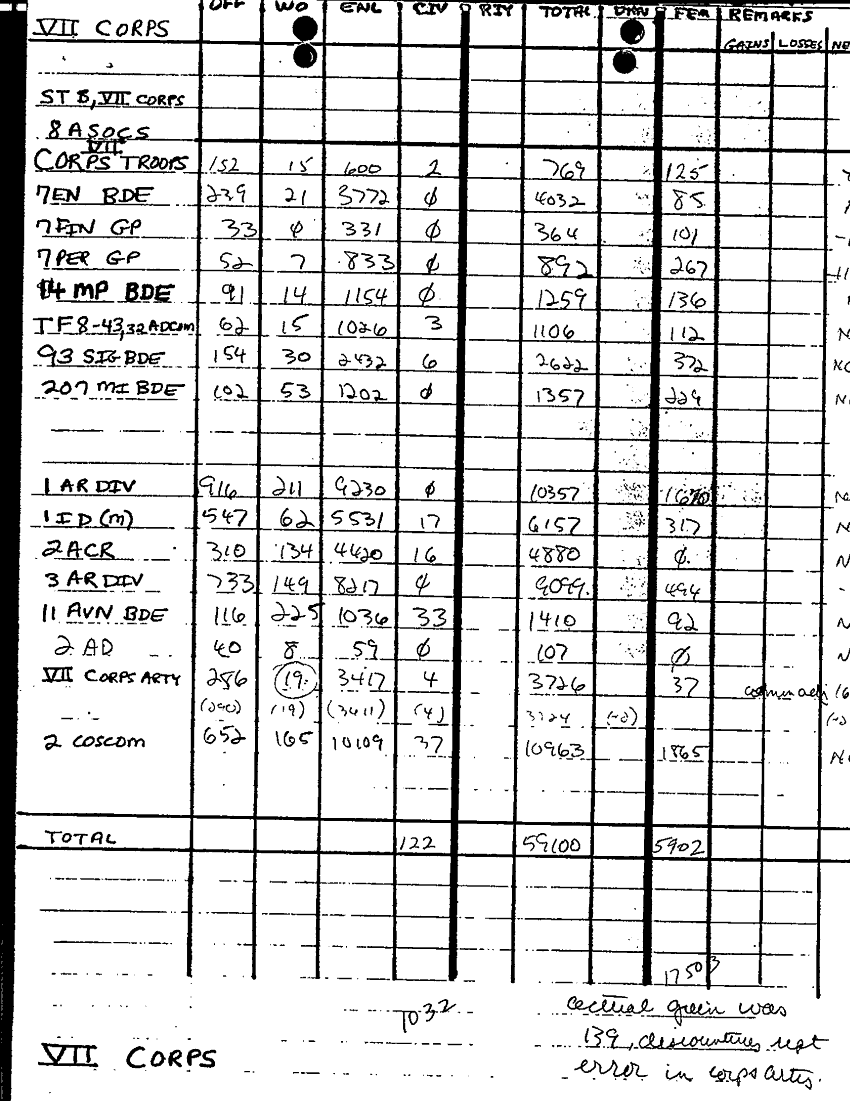 OFF WO ENL CIV RIY TOTAL FEM REMARKS
VII CORPS
GAINS LOSSES NE
ST B, VII CORPS
8 ASOCS
VII
CORPS TROOPS 152 15 600 2 769 125
7EN BDE 239 21 3772 Ø 4032 85
7FIN GP 33 Ø 331 Ø 364 101
7PER GP 52 7 833 Ø 892 267
14 MP BDE 91 14 1154 Ø 1259 136
TF8-43,32ADCOM 62 15 1026 3 1106 112
93 SIG BDE 154 30 2432 6 2622 372
207 MI BDE 102 53 1202 Ø 1357 229
1 AR DIV 916 211 9230 Ø 10357
1 ID (m) 547 62 5531 17 6157 317
2 ACR 310 134 4420 16 4880 Ø
3 AR DIV 733 149 8217 Ø 9099 494
11 AVN BDE 116 225 1036 33 1410 92
2 AD 40 8 59 Ø 107 Ø
VII CORPS ARTY 286 19 3417 4 3726 37
(290) (19) (3411) (4) 3724 (-2)
2 COSCOM 652 165 10109 37 10963 1865
TOTAL 122 59100 5902
1032
actual green was
139, discounting rept
error in corps arty.
VII CORPS